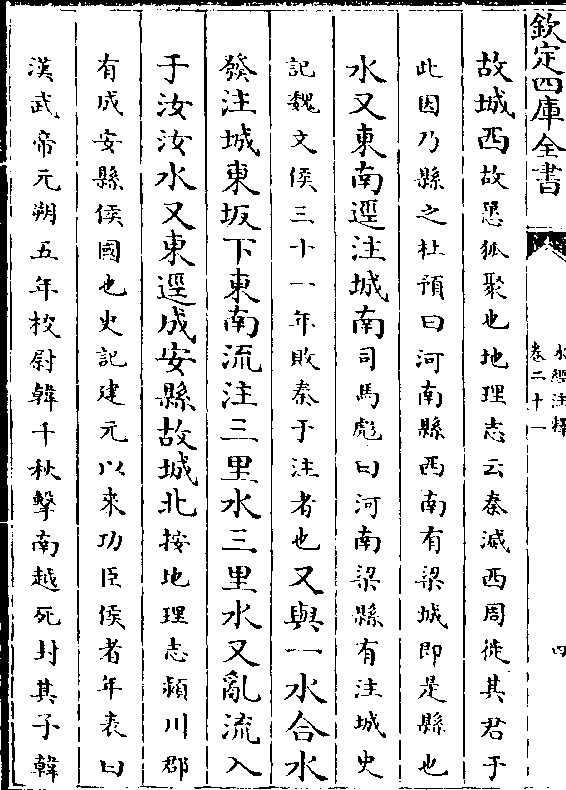 欽定四庫全書
水經注釋
卷二十一
四
故城西故𢠸狐聚也地理志云秦滅西周徙其君于
此因乃縣之杜預曰河南縣西南有梁城即是縣也
水又東南逕注城南司馬彪曰河南梁縣有注城史
記魏文侯三十一年敗秦于注者也又與一水合水
發注城東坂下東南流注三里水三里水又亂流入
于汝汝水又東逕成安縣故城北按地理志潁川郡
有成安縣侯國也史記建元以來功臣侯者年表曰
漢武帝元朔五年校尉韓千秋擊南越死封其子韓